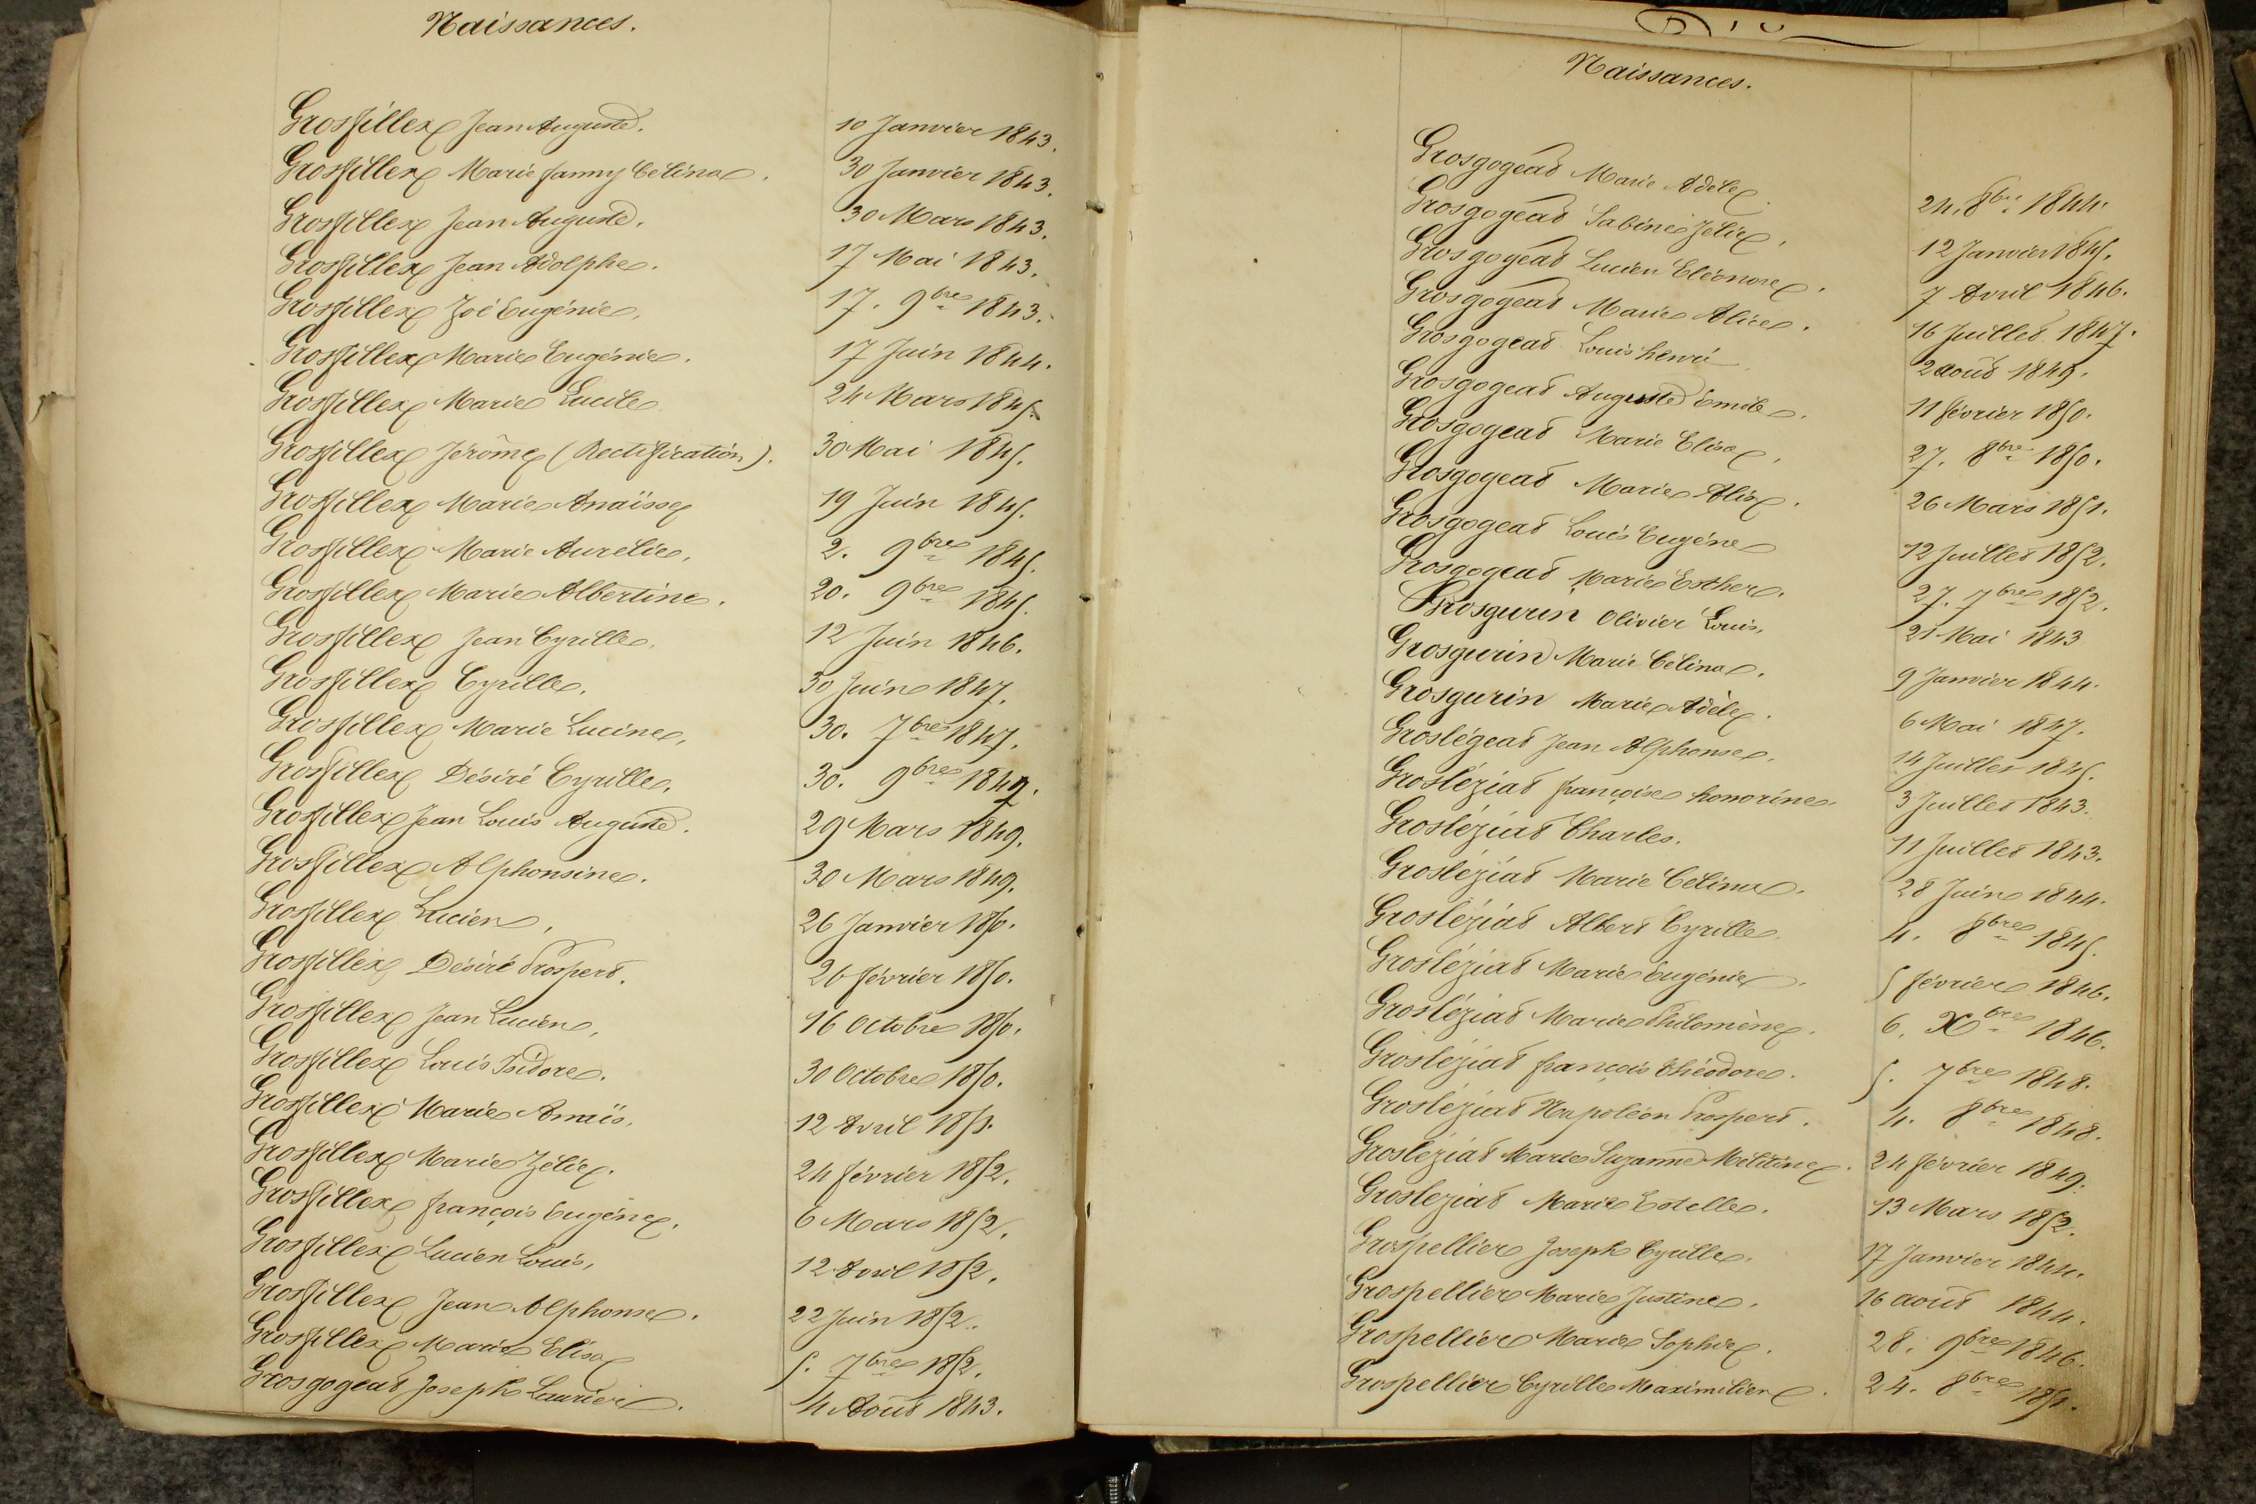 Naissances.
Grosfillex Jean Auguste. 10 Janvier 1843.
Grosfillex Marie fanny Célina. 30 Janvier 1843.
Grosfillex Jean Auguste. 30 Mars 1843.
Grosfillex Jean Adolphe. 17 Mai 1843.
Grosfillex Zoé Eugénie. 17. 9bre 1843.
Grosfillex Marie Eugénie. 17 Juin 1844.
Grosfillex Marie Lucile 24 Mars 1845.
Grosfillex Jérôme (Rectification). 30 Mai 1845.
Grosfillex Marie Anaïsse 19 Juin 1845.
Grosfillex Marie Aurélie. 2. 9bre 1845.
Grosfillex Marie Albertine. 20. 9bre 1845.
Grosfillex Jean Cyrille. 12 Juin 1846.
Grosfillex Cyrille. 30 Juin 1847.
Grosfillex Marie Lucine. 30. 7bre 1847.
Grosfillex Désiré Cyrille. 30. 9bre 1849.
Grosfillex Jean Louis Auguste. 29 Mars 1849.
Grosfillex Alphonsine. 30 Mars 1849.
Grosfillex Lucien. 26 Janvier 1850.
Grosfillex Désiré Prospert. 26 février 1850.
Grosfillex Jean Lucien. 16 Octobre 1850.
Grosfillex Louis Isidore. 30 Octobre 1850.
Grosfillex Marie Anaïs. 12 Avril 1851.
Grosfillex Marie Zélie. 24 février 1852.
Grosfillex françois Eugène. 6 Mars 1852.
Grosfillex Lucien Louis, 12 Avril 1852.
Grosfillex Jean Alphonse. 22 Juin 1852.
Grosfillex Marie Elisa 5. 7bre 1852.
Grosgogeat Joseph Laurier. 4 Août 1843.
Naissances.
Grosgogeat Marie Adèle. 24. 8bre 1844.
Grosgogeat Sabine Zélie. 12 Janvier 1845.
Grosgogeat Lucien Eléonore. 7 Avril 1846.
Grosgogeat Marie Alice. 16 Juillet 1847.
Grosgogeat Louis henri 2 août 1849.
Grosgogeat Auguste Emile. 11 février 1850.
Grosgogeat Marie Elisa. 27. 8bre 1850.
Grosgogeat Marie Alix. 26 Mars 1851.
Grosgogeat Louis Eugène 12 Juillet 1852.
Grosgogeat Marie Esther. 27. 7bre 1852.
Grosgurin Olivier Louis, 21 Mai 1843
Grosgurin Marie Célina. 9 Janvier 1844.
Grosgurin Marie Adèle. 6 Mai 1847.
Groslégeat Jean Alphonse. 14 Juillet 1845.
Grosléziat françoise honorine. 3 Juillet 1843.
Grosléziat Charles. 11 Juillet 1843.
Grosléziat Marie Célina. 28 Juin 1844.
Grosléziat Albert Cyrille 4. 8bre 1845.
Grosléziat Marie Eugénie. 5 février 1846.
Grosléziat Marie Philomène. 6. Xbre 1846.
Grosléziat françois théodore. 5. 7bre 1848.
Grosléziat Napoléon Prospert. 4. 8bre 1848.
Grosléziat Marie Suzanne Mélitine. 24 février 1849.
Grosleziat Marie Estelle. 13 Mars 1852.
Grospellier Joseph Cyrille. 17 Janvier 1844.
Grospellier Marie Justine. 16 août 1844.
Grospellier Marie Sophie. 28. 9bre 1846.
Grospellier Cyrille Maximilien. 24. 8bre 1851.